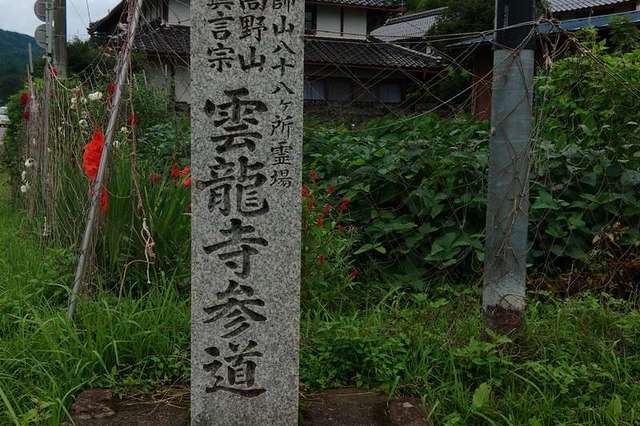 師山八十八ヶ所霊場
高野山
眞言宗
雲龍寺参道